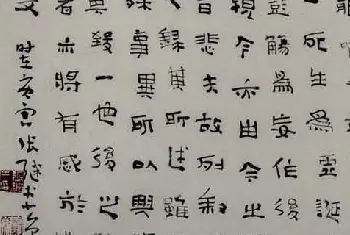 一死生爲虛誕
彭殤爲妄作後
視今亦由今之
昔悲夫故列叙
錄其所述雖
殊事異所以興
其致一也後之
者亦將有感於
文
時在庚寅张继书